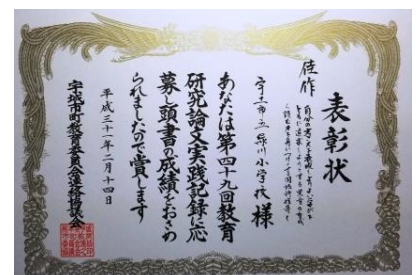 表彰状
佳作
宇土市立 小学校 様
あなたは第四十九回教育
研究論文実践記録に応
募し頭書の成績をおさめ
られましたので賞します
平成三十一年二月十四日
宇城市町教育委員会連絡協議会